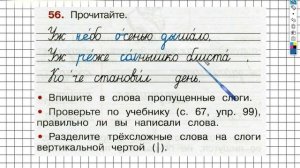 56. Прочитайте.
Уж небо осенью дышало,
Уж реже солнышко блиста .
Ко че станови л день.
• Впишите в слова пропущенные слоги.
• Проверьте по учебнику (с. 67, упр. 99), правильно ли вы написали слова.
• Разделите трёхсложные слова на слоги вертикальной чертой (|).